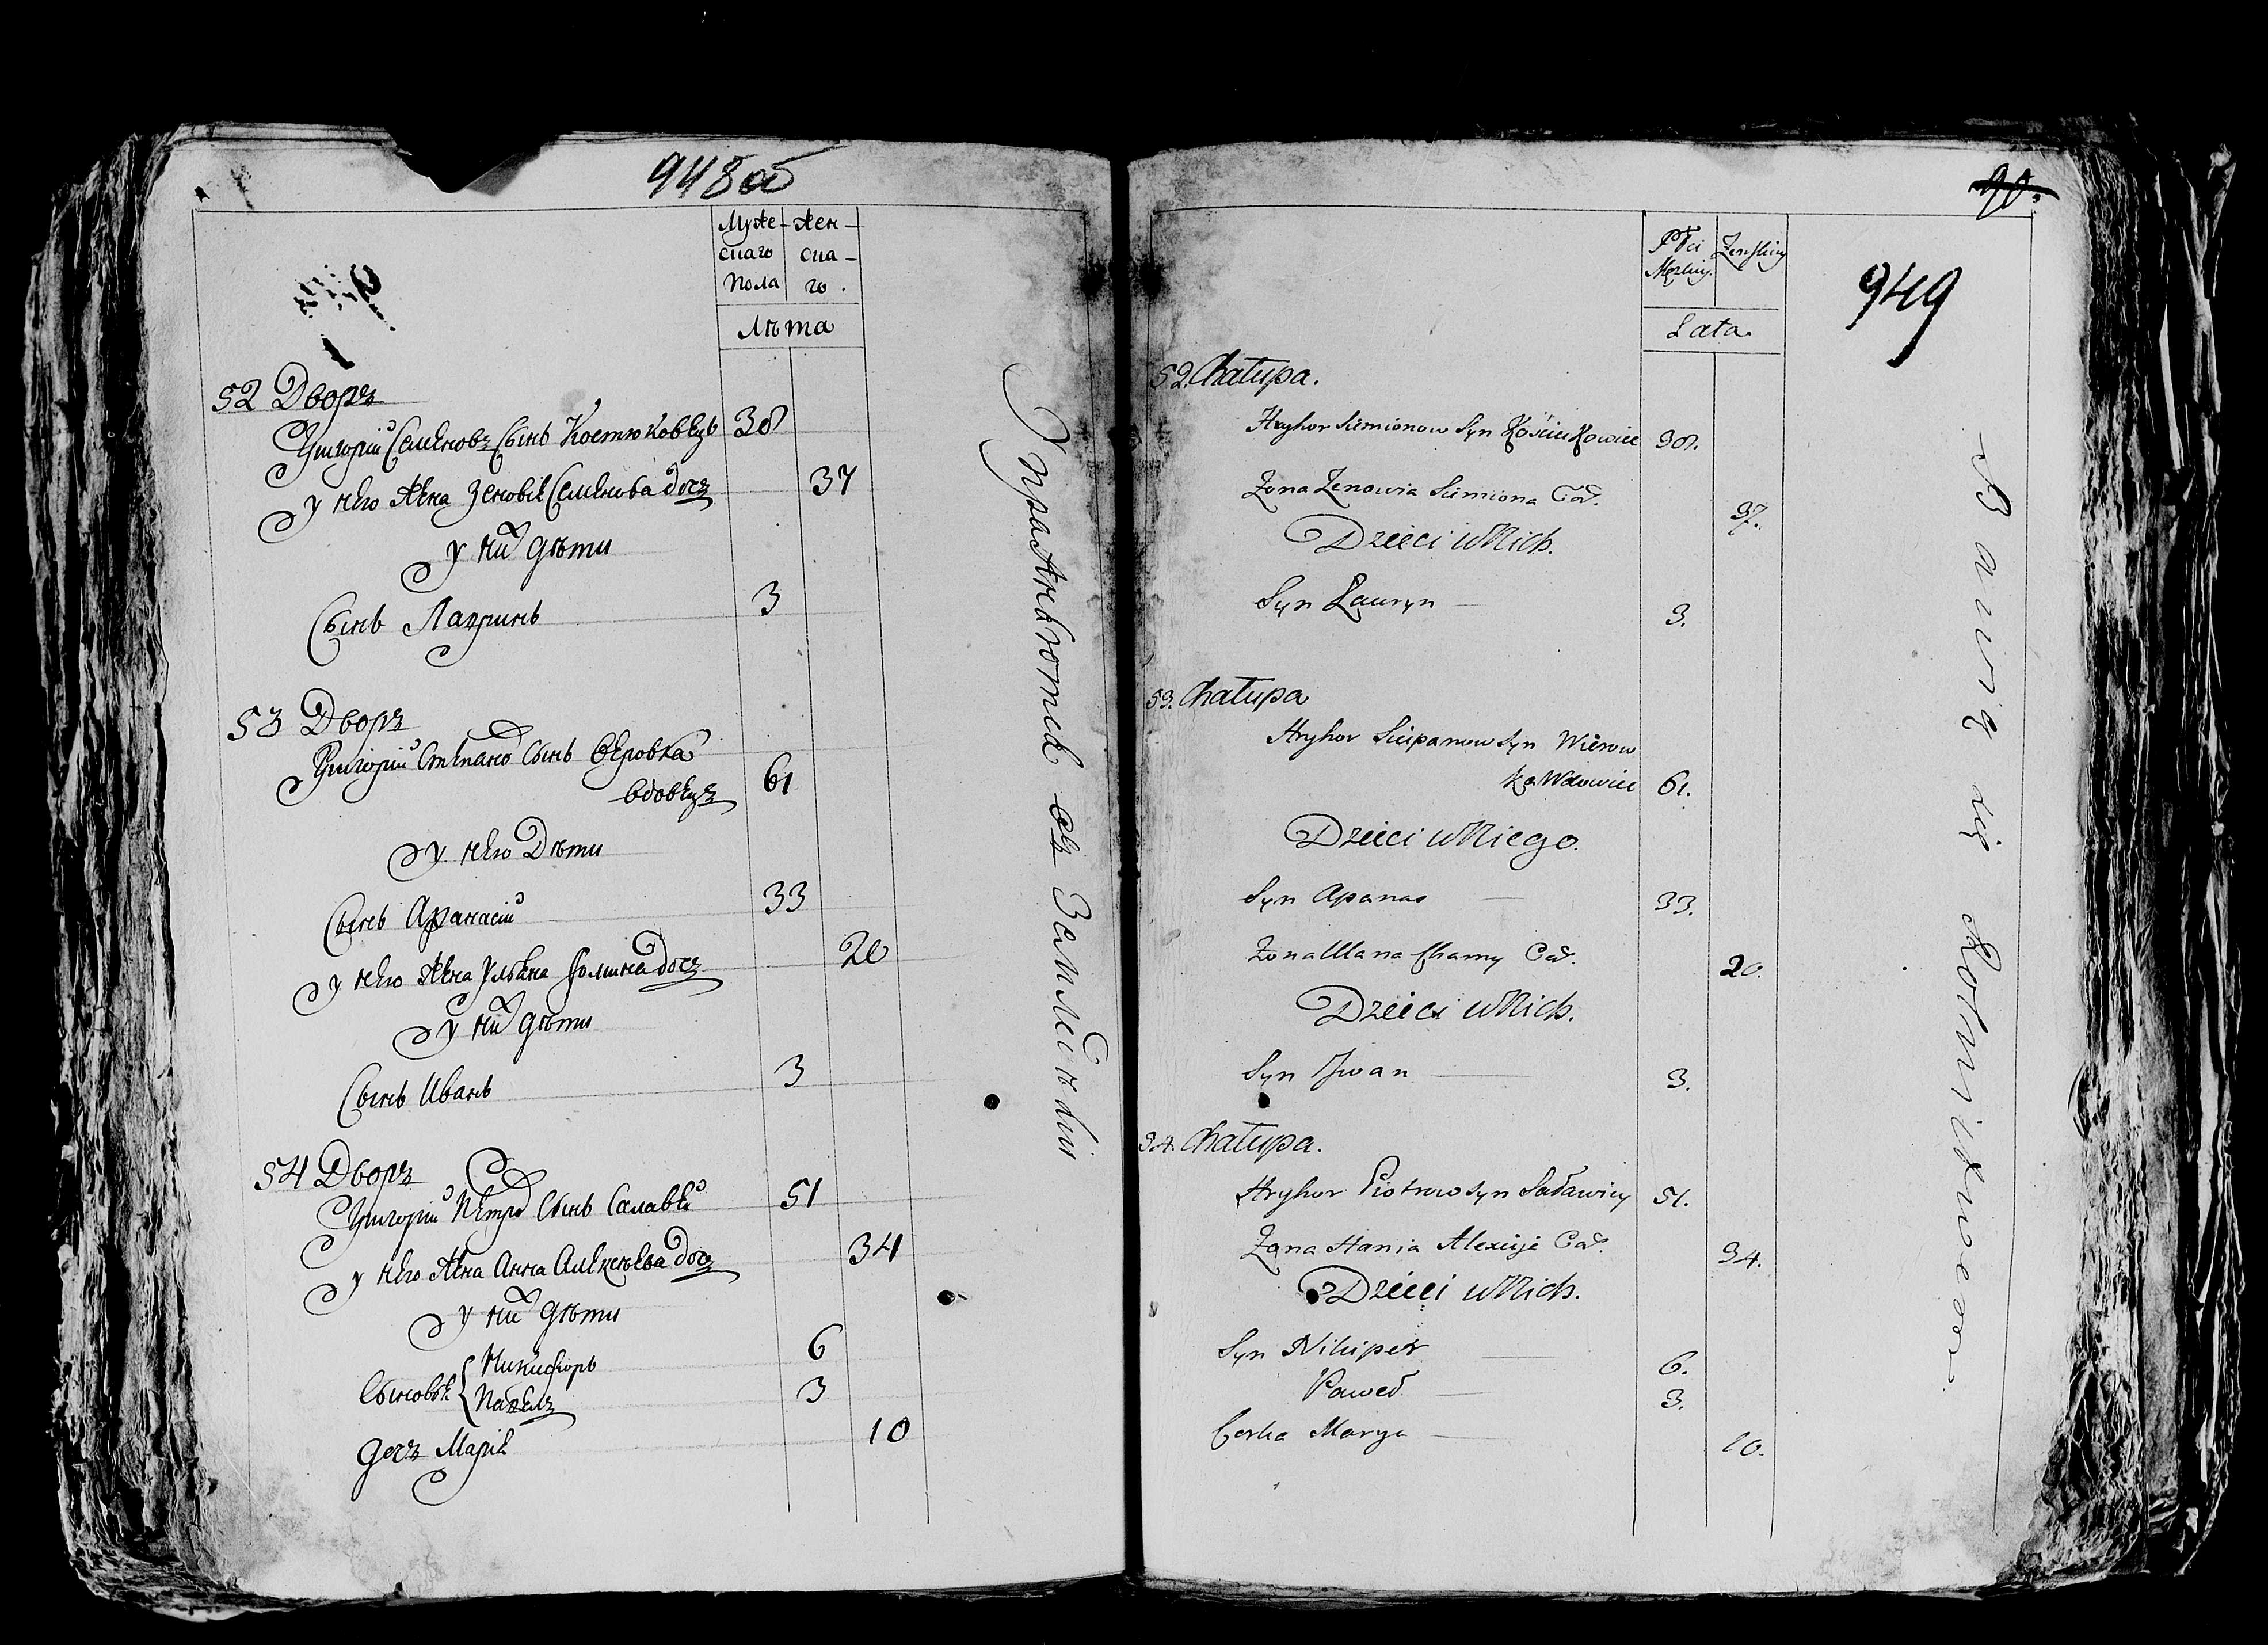 948 об
Муже- жен-
скаго ска-
пола го.
Лѣта
52 Дворъ
Григорій Семеновъ Сынъ Костюковецъ 38
у него жена Зеновія Семенова дочъ 37
у них дѣти
Сынъ Лавринъ 3
53 Дворъ
Григорій Степано Сынъ Веровка
вдовецъ 61
у него Дѣти
Сынъ Афанасій 33
у него жена Ульяна Фомина дочъ 20
у них дѣти
Сынъ Иванъ 3
54 Дворъ
Григорій Петро Сынъ Салавей 51
у него жена Анна Алексѣева дочъ 34
у них дѣти
Сыновья { Никифоръ 6
Павелъ 3
дочъ Марія 10
Упражняютса въ Земледѣліи
90.
949
Płci Żenskiey
Męzkiey
Lata.
52. Chałupa.
Hryhor Siemionow Syn Kościukowiec 38.
Żona Zenowia Siemiona Cór. 37.
Dzieci u Nich.
Syn Lauryn — 3.
53. Chałupa
Hryhor Sciepanow Syn Wierow
ka Wdowiec 61.
Dzieci u Niego.
Syn Apanas — 33.
Żona Ulana Chamy Cór. 20.
Dzieci u Nich.
Syn Iwan — 3.
54. Chałupa.
Hryhor Piotrow Syn Saławiey 51.
Żona Hania Alexieje Cór. 34.
Dzieci u Nich.
Syn Nikiper — 6.
Paweł — 3.
Corka Marya — 10.
Bawią się Rolnictwem.